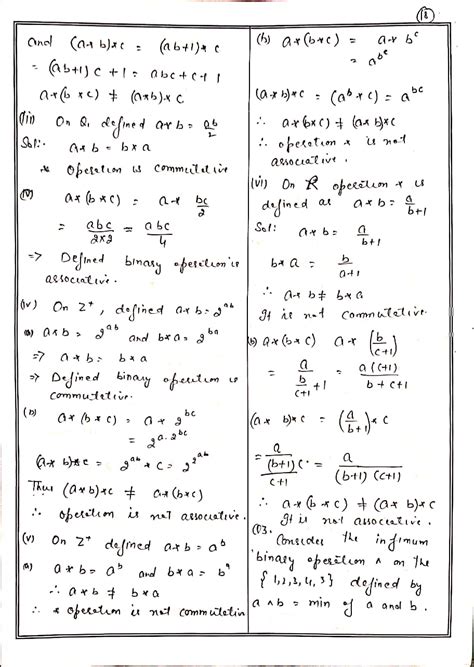 18
and (a * b) * c = (ab+1) * c
= (ab+1) c + 1 = abc + c + 1
a * (b * c) ≠ (a*b) * c
(iii) On Q, defined a * b = ab/2
Sol:- a * b = b * a
* Operation is commutative
(b) a * (b * c) = a * bc/2
= abc/2x2 = abc/4
=> Defined binary operation is
associative.
(iv) On Z⁺, defined a * b = 2^ab
(a) a * b = 2^ab and b * a = 2^ba
=> a * b = b * a
=> Defined binary operation is
commutative.
(b) a * (b * c) = a * 2^bc
= 2^a.2^bc
(a * b) * c = 2^ab * c = 2^2^ab
Thus (a * b) * c ≠ a * (b * c)
∴ operation is not associative.
(v) On Z⁺ defined a * b = a^b
(a) a * b = a^b and b * a = b^a
∴ a * b ≠ b * a
∴ * operation is not commutative
(b) a * (b * c) = a * b^c
= a^b^c
(a * b) * c = (a^b * c) = a^bc
∴ a * (b * c) ≠ (a * b) * c
∴ operation * is not
associative.
(vi) On R operation * is
defined as a * b = a/b+1
Sol: a * b = a/b+1
b * a = b/a+1
∴ a * b ≠ b * a
It is not commutative.
(b) a * (b * c) a * (b/c+1)
= a/(b/c+1 + 1) = a(c+1)/b+c+1
(a * b) * c = (a/b+1) * c
= a/(b+1) c/c+1 = a/(b+1) (c+1)
∴ a * (b * c) ≠ (a * b) * c
It is not associative.
Q3. Consider the infimum
binary operation ∧ on the
{1,2,3,4,5} defined by
a ∧ b = min of a and b.